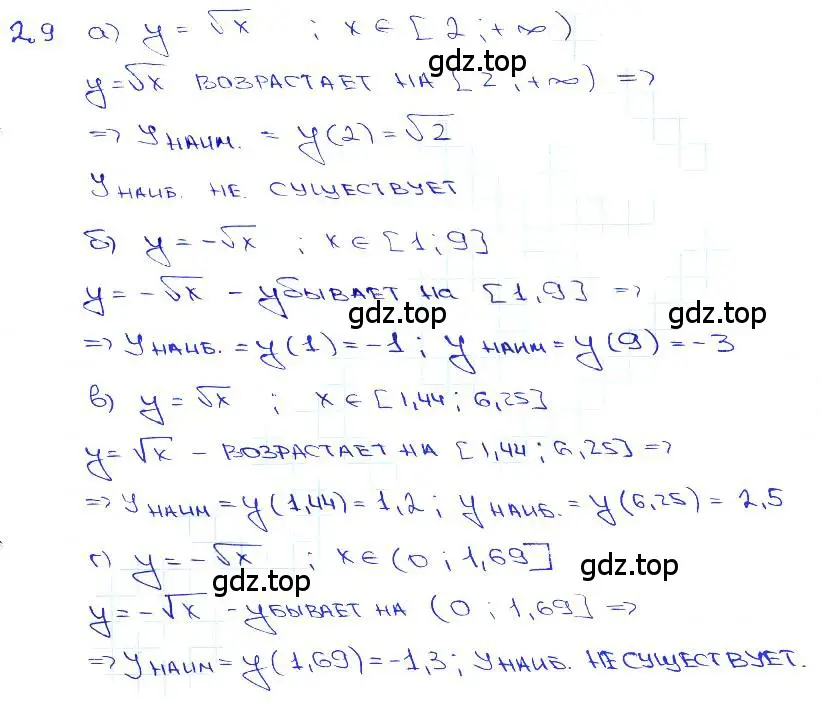 2.9 а) y = √x ; x ∈ [2 ; +∞)
gdz.top
y=√x ВОЗРАСТАЕТ НА [2 ; +∞) =>
=> y НАИМ. = y(2) = √2
y НАИБ. НЕ. СУЩЕСТВУЕТ
б) y = -√x ; x ∈ [1 ; 9]
y = -√x - УБЫВАЕТ НА [1, 9] =>
gdz.top gdz.top
=> y НАИБ. = y(1) = -1 ; y НАИМ = y(9) = -3
в) y = √x ; x ∈ [1,44 ; 6,25]
y = √x - ВОЗРАСТАЕТ НА [1,44 ; 6,25] =>
=> y НАИМ = y(1,44) = 1,2 ; y НАИБ. = y(6,25) = 2,5
г) y = -√x ; x ∈ (0 ; 1,69]
gdz.top gdz.top
y = -√x - УБЫВАЕТ НА (0 ; 1,69] =>
=> y НАИМ = y(1,69) = -1,3 ; y НАИБ. НЕ СУЩЕСТВУЕТ.